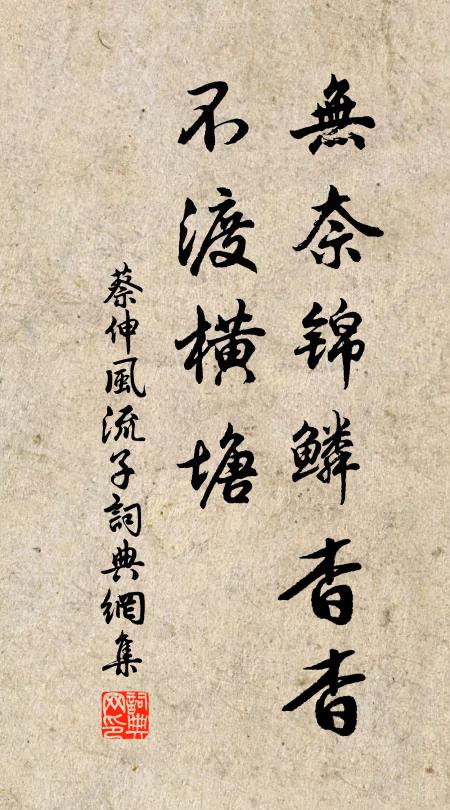 無奈錦鱗杳杳
不渡橫塘
蔡伸風流子詞典網集
詞典
网印